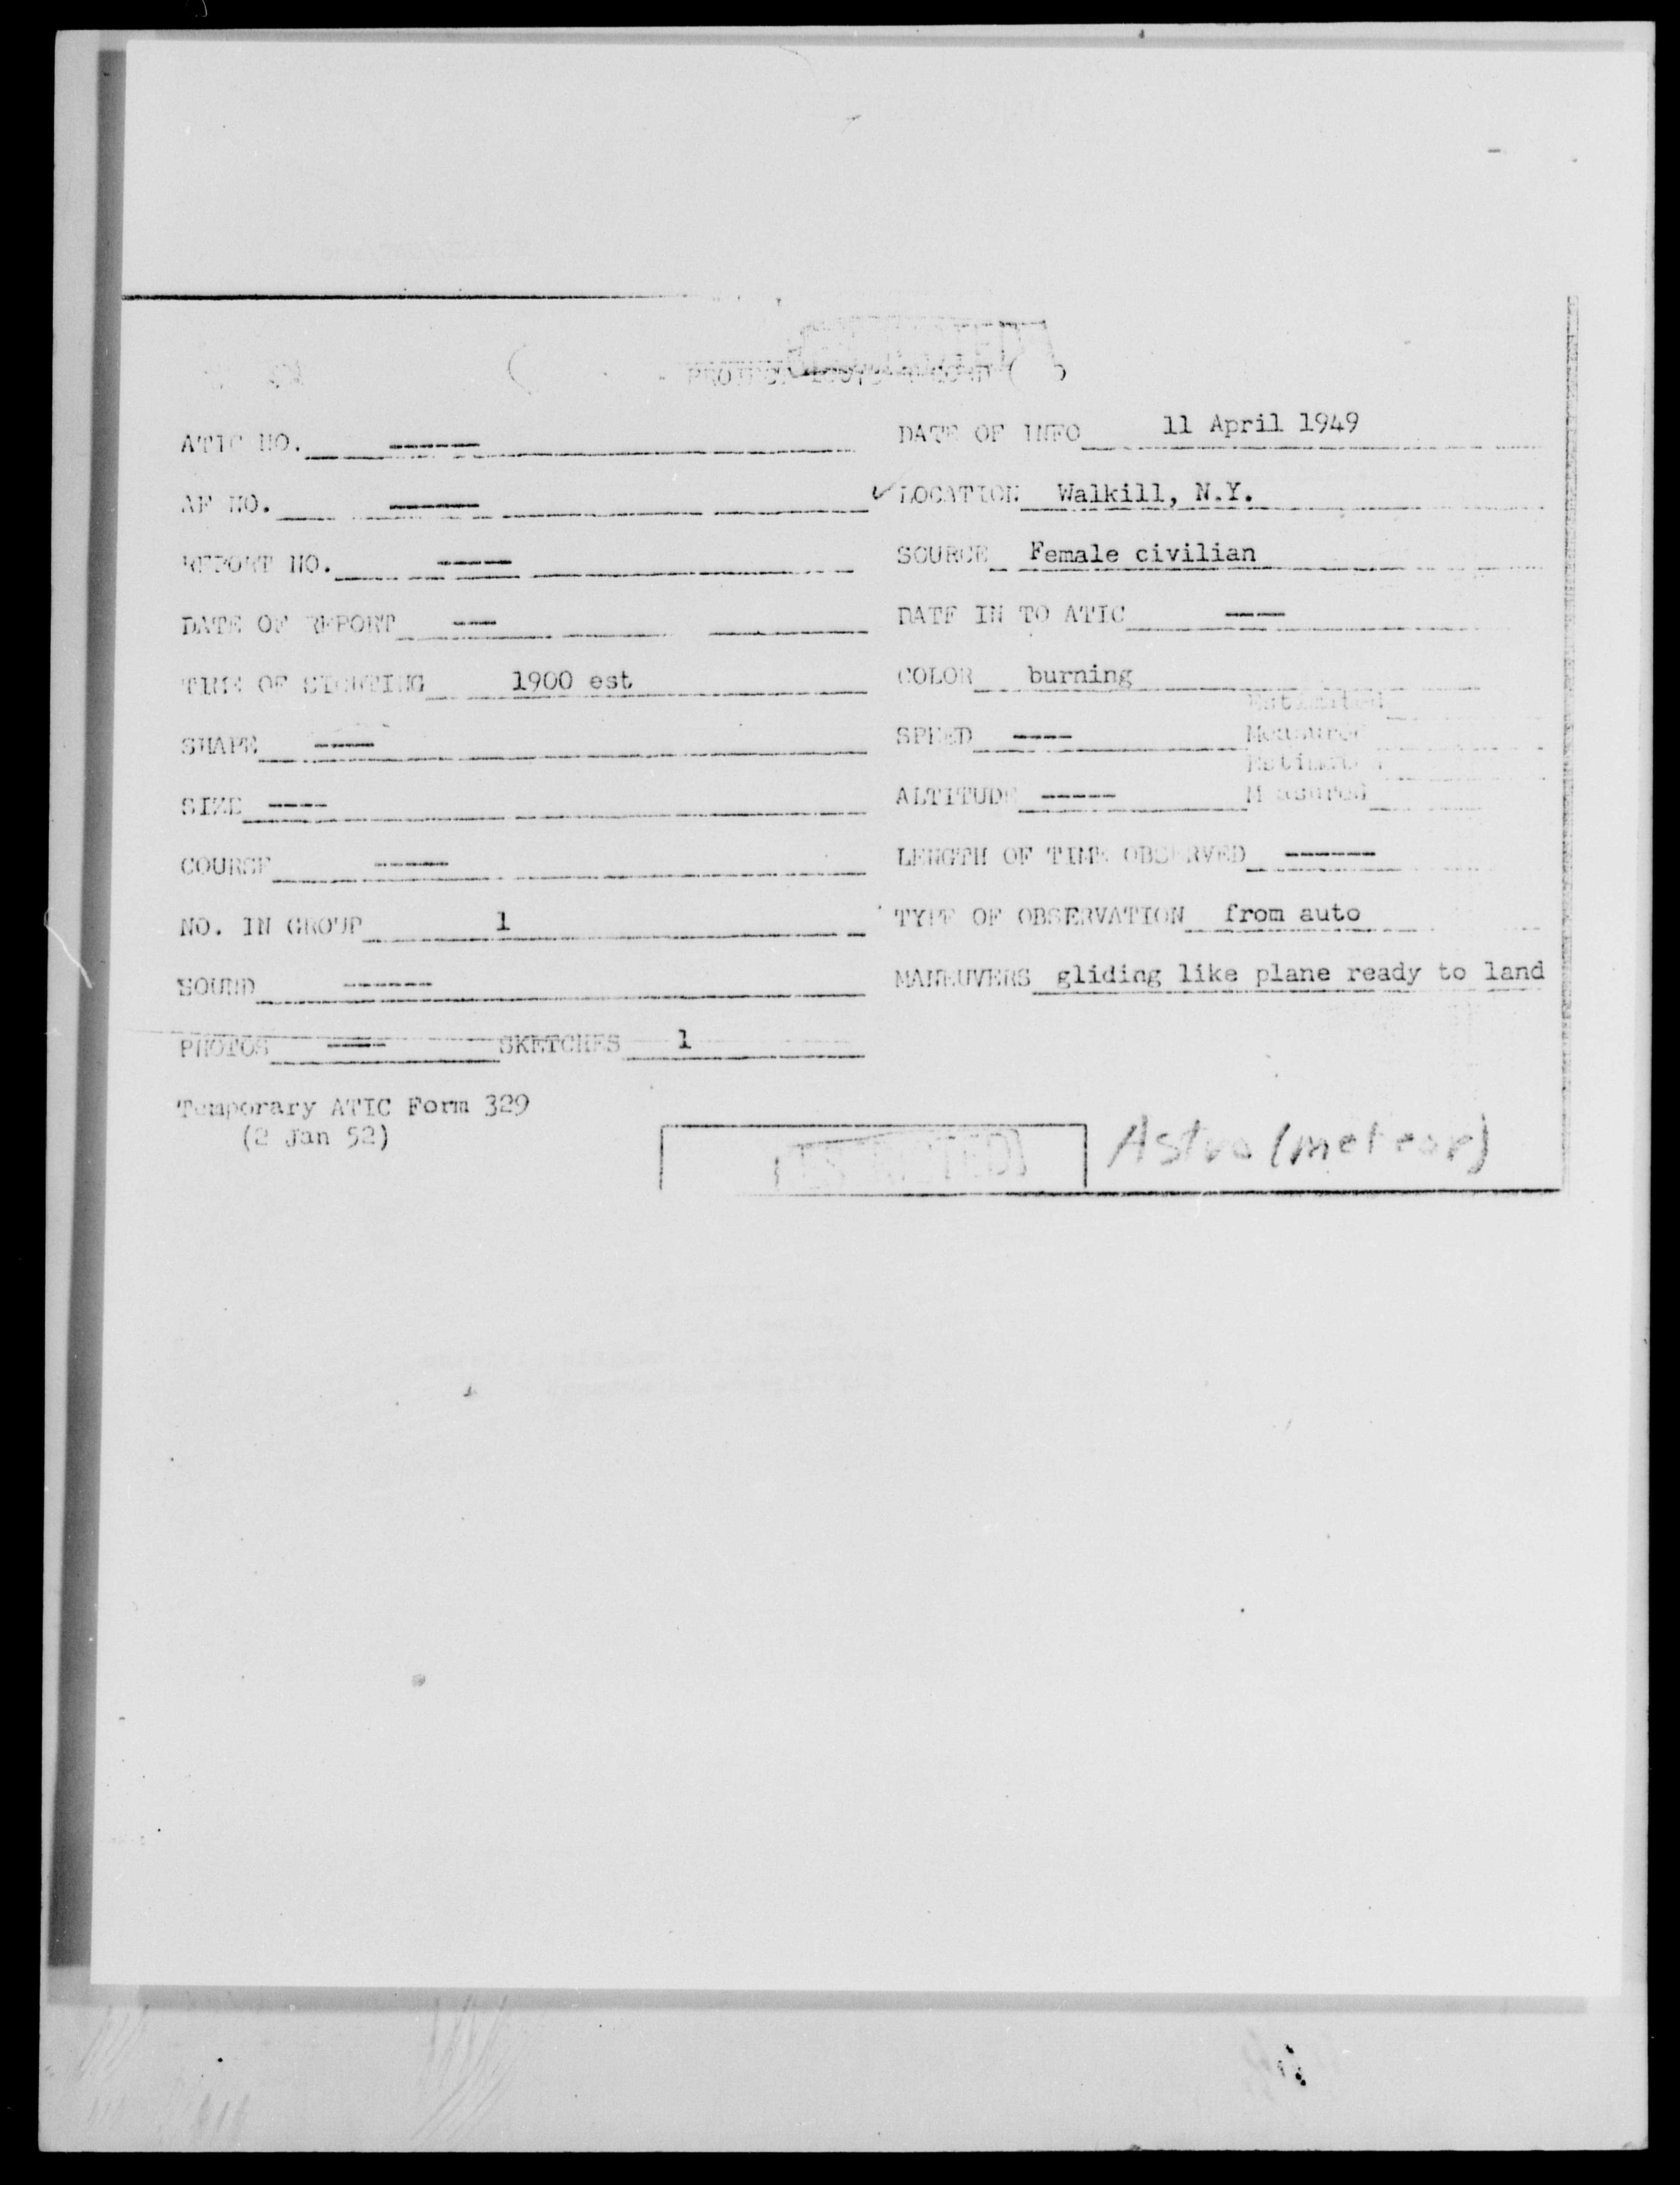 PROJECT
ATIC NO. ---- DATE OF INFO 11 April 1949
AF NO. ---- ✓LOCATION Walkill, N.Y.
REPORT NO. ---- SOURCE Female civilian
DATE OF REPORT -- DATE IN TO ATIC ---
TIME OF SIGHTING 1900 est COLOR burning
Estimated
SHAPE --- SPEED ---- Measured
Estimated
SIZE ---- ALTITUDE ----- Measured
COURSE ----- LENGTH OF TIME OBSERVED ------
NO. IN GROUP 1 TYPE OF OBSERVATION from auto
SOUND ------ MANEUVERS gliding like plane ready to land
PHOTOS ---- SKETCHES 1
Temporary ATIC Form 329
(2 Jan 52)
RESTRICTED
Astro (meteor)